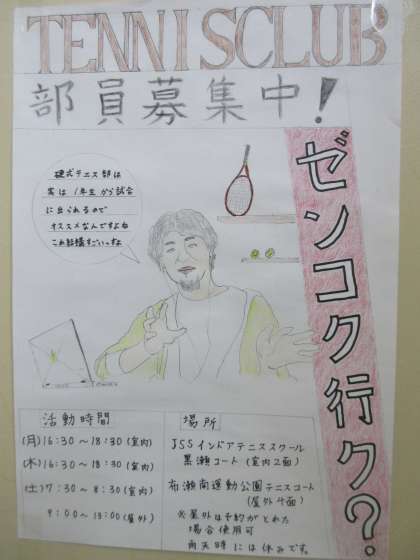 TENNISCLUB
部員募集中!
ゼンコク行ク?
硬式テニス部は
実は1年生から試合
に出られるので
オススメなんですよね
これ結構すごいっすよ
活動時間
(月)16:30～18:30(室内)
(木)16:30～18:30(室内)
(土)7:30～8:30(室内)
9:00～13:00(屋外)
場所
JSSインドアテニススクール
黒瀬コート(室内2面)
布瀬南運動公園テニスコート
(屋外4面)
※屋外は予約がとれた
場合使用可
雨天時には休みです。